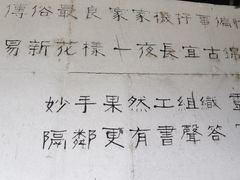 傳俗最良家家機杼事偏
易新花樣一夜長宜古錦
妙手果然工組織
隔鄰更有書聲答